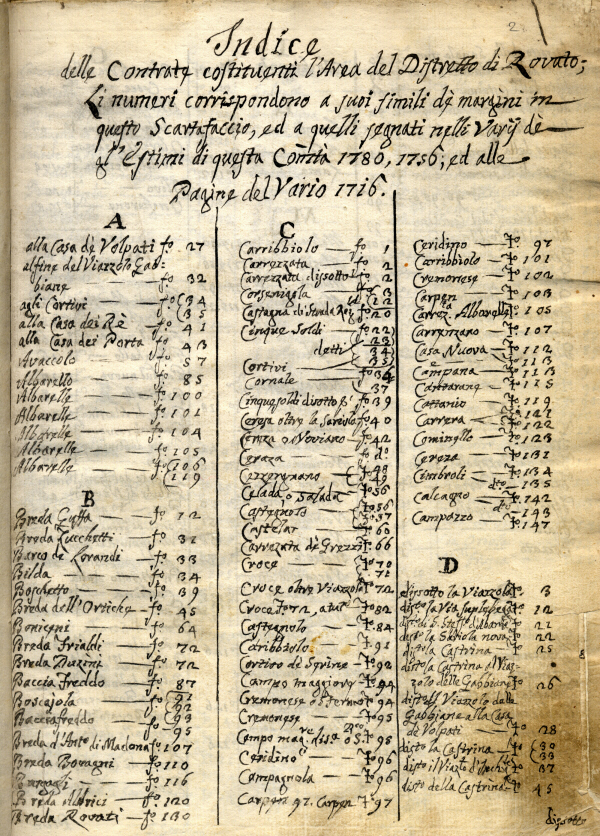 2
Indice
delle Contrate costituenti l'Area del Distretto di Rovato;
Li numeri corrispondono a suoi simili dè margini in
questo Scartafaccio, ed a quelli segnati nelli Varÿ dè
gl'Estimi di questa Comtà 1780, 1756; ed alle
Pagine del Vario 1716.
A
alla Casa dè Volpati fo. 27
alfine del Viazzolo Gab=
biane fo. 32
agli Cortivi fo. 34
35
alla Casa dei Rè fo. 41
alla Casa dei Porta fo. 43
Avaccolo fo. 57
Albarello fo. 85
Albarelle fo. 100
Albarelle fo. 101
Albarelle fo. 104
Albarelle fo. 105
Albarelle fo. 106
119
B
Breda Gaffa fo. 12
Breda Zucchetti fo. 31
Barco de Lorandi fo. 33
Bilda fo. 34
Boschetto fo. 39
Breda dell'Ortiche fo. 45
Bonicgni fo. 64
Breda Frialdi fo. 72
Breda Duzini fo. 72
Baccia Freddo fo. 87
Boscajola fo. 91
92
Bacciafreddo fo. 93
95
Breda d'Anto. di Madona fo. 107
Breda Bonagni fo. 110
fo. 116
Breda Albrici fo. 120
Breda Rovati fo. 130
C
Carribbiolo fo. 1
Carrezzata fo. 2
Carrezzata dissotto fo. 2
Conseniga fo. 3
12
Castagna di Strada fo. 20
Cinque Soldi fo. 22
23
detti 34
35
Cortivi
Cornale fo. 36
37
Cinquesoldi disotto fo. 39
Ceresa oltre la Seriola fo. 40
Ceresa o Noviano fo. 42
Ceraza fo. do.
48
49
Celada, o Salada fo. 56
Castegnolo fo. 56
57
Castelar fo. 60
Carrezata dè Grezzi fo. 66
Croce fo. 70
71
Croce oltre Viazzolo fo. 72
Croce fo. 72, fo. 82
Castagnolo fo. 84
Caribbiolo fo. 91
Cortivo de fo. 92
Campo maggiore fo. 94
Cremonese o fo. 94
Cremonese fo. 95
Campo fo. 95
Ceridino fo. 96
Campagnola fo. 96
Carpen 97. Carpen fo. 97
Ceridino fo. 97
Carribbiolo fo. 101
Cremonese fo. 102
Carpen fo. 103
Carrez. Albarelle fo. 105
Carremano fo. 107
Casa Nuova fo. 112
113
Campana fo. 113
fo. 115
Cattanio fo. 119
Carrera fo. 121
122
Cominello fo. 123
Cereza fo. 131
Cimbroli fo. 134
do. 135
Calcagno fo. 142
143
Campazzo fo. 147
D
dissotto la Viazzola fo. 3
disto la Via fo. 12
fo. 21
disto la Seriola nova fo. 22
disto la Castrina fo. 25
disto la Castrina o Viaz=
zolo delle Gabbiane fo. 26
disto il Viazzolo delle
Gabbiane alla Casa
dè Volpati fo. 28
disto la Castrina fo. 30
33
disto il Viazolo fo. 37
disto della Castrina fo. 45
dissotto